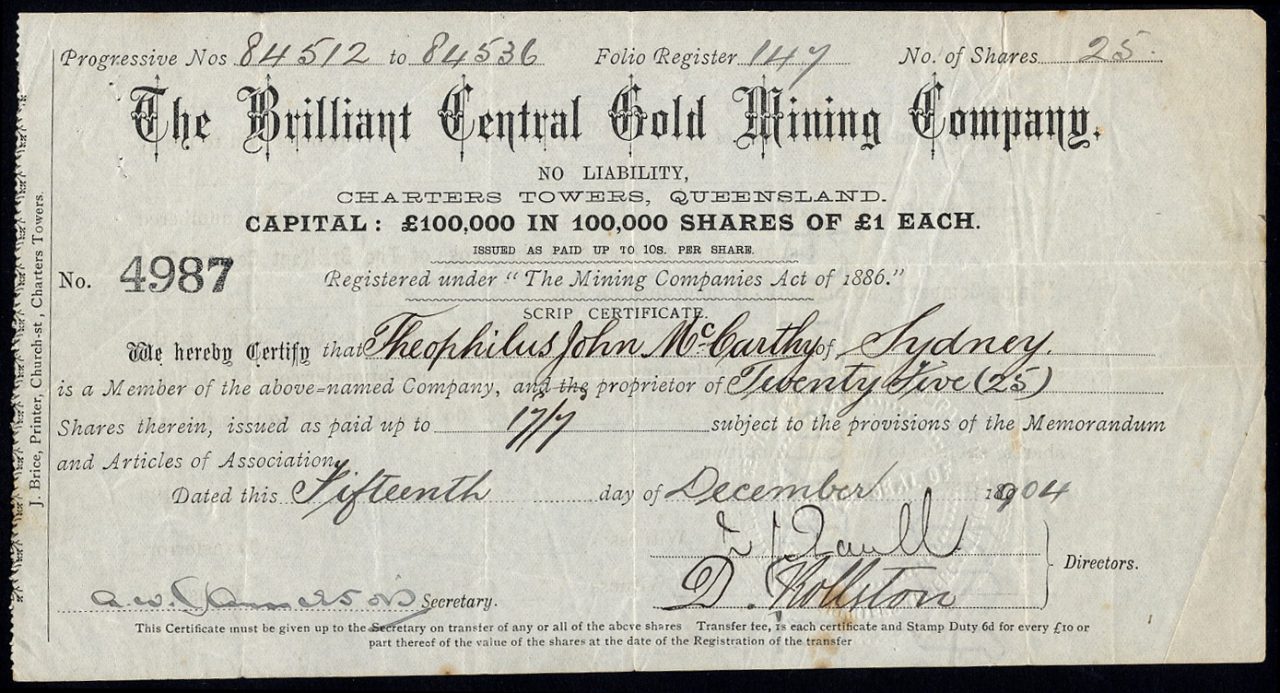 Progressive Nos 84512 to 84536 Folio Register 147 No. of Shares 25
The Brilliant Central Gold Mining Company.
NO LIABILITY,
CHARTERS TOWERS, QUEENSLAND.
CAPITAL: £100,000 IN 100,000 SHARES OF £1 EACH.
ISSUED AS PAID UP TO 10S. PER SHARE.
No. 4987 Registered under "The Mining Companies Act of 1886."
SCRIP CERTIFICATE.
We hereby Certify that Theophilus John McCarthy of Sydney.
is a Member of the above-named Company, and the proprietor of Twenty Five (25)
Shares therein, issued as paid up to 17/7 subject to the provisions of the Memorandum
and Articles of Association,
Dated this Fifteenth day of December 1904
Directors.
D. Rollston
Secretary.
This Certificate must be given up to the Secretary on transfer of any or all of the above shares Transfer fee, is each certificate and Stamp Duty 6d for every £10 or
part thereof of the value of the shares at the date of the Registration of the transfer
J. Brice, Printer, Church-st, Charters Towers.